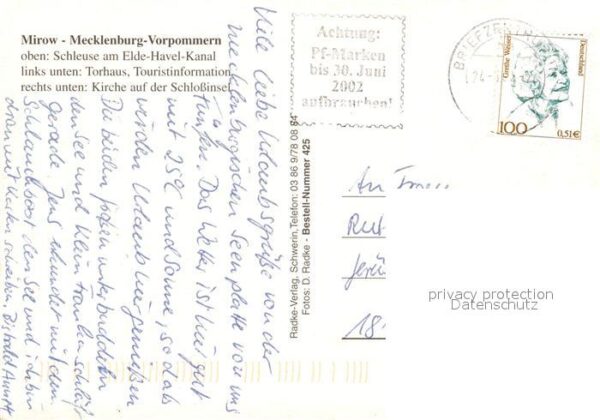 Mirow - Mecklenburg-Vorpommern
oben: Schleuse am Elde-Havel-Kanal
links unten: Torhaus, Touristinformation
rechts unten: Kirche auf der Schloßinsel
Achtung:
Pf-Marken
bis 30. Juni
2002
aufbrauchen!
BRIEFZE
24
Grethe Weiser
Deutschland
100
0,51€
Viele liebe Urlaubsgrüße von der
mecklenburgischen Seenplatte von uns
. Das Wetter ist hier gut
mit 25°C und Sonne, so daß
wir den Urlaub genießen
Die beiden
den See und klein schläft
gerade. Jens erkundet mit dem
Schlauchboot den See und ich bin
dran mit Karten schreiben. Bis bald
Radke-Verlag, Schwerin, Telefon: 03 86 9/78 08 84
Fotos: D. Radke - Bestell-Nummer 425
An
18
privacy protection
Datenschutz